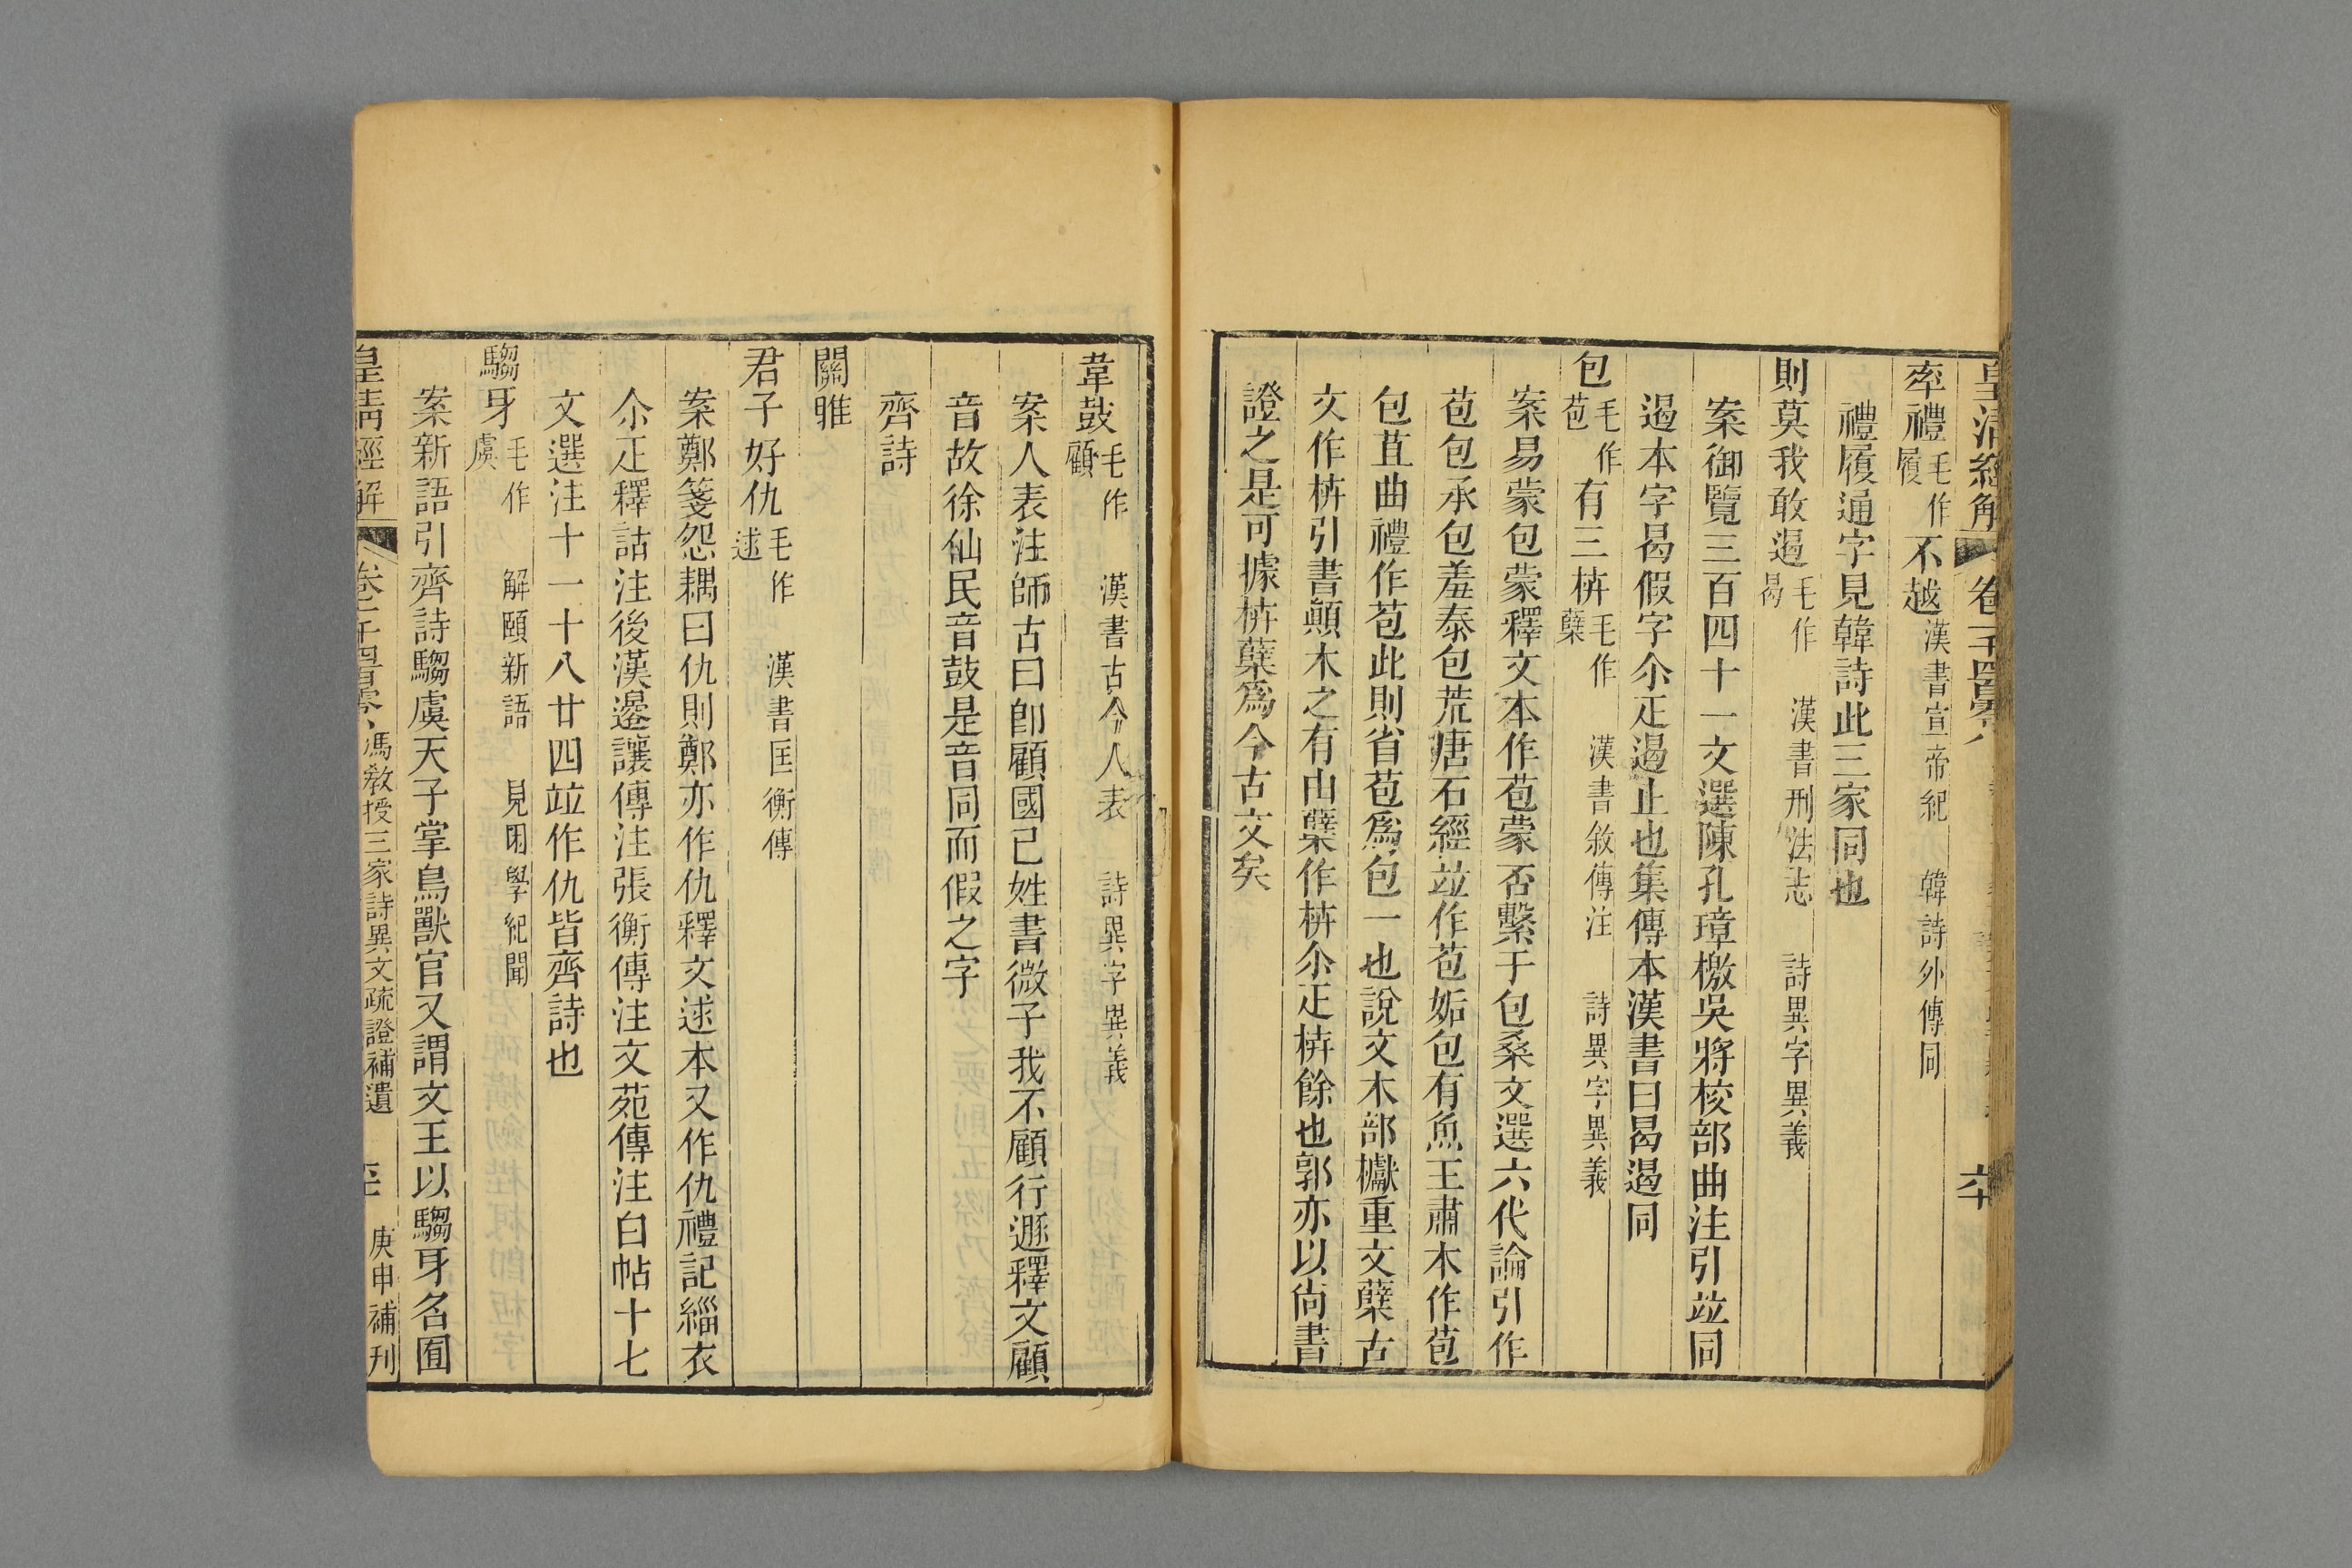 皇清經解 卷一千四百零八 六十
率禮毛作履不越漢書宣帝紀 韓詩外傳同
禮履通字見韓詩此三家同也
則莫我敢遏毛作曷 漢書刑法志 詩異字異義
案御覽三百四十一文選陳孔璋檄吳將校部曲注引竝同
遏本字曷假字尒疋遏止也集傳本漢書曰曷遏同
包毛作苞有三枿毛作蘖 漢書敘傳注 詩異字異義
案易蒙包蒙釋文本作苞蒙否繫于包桑文選六代論引作
苞包承包羞泰包荒唐石經竝作苞姤包有魚王肅木作苞
包苴曲禮作苞此則省苞爲包一也說文木部櫱重文蘖古
文作枿引書顛木之有由蘖作枿尒疋枿餘也郭亦以尙書
證之是可據枿蘖爲今古文矣
韋鼓毛作顧 漢書古今人表 詩異字異義
案人表注師古曰卽顧國已姓書微子我不顧行遯釋文顧
音故徐仙民音鼓是音同而假之字
齊詩
關雎
君子好仇毛作逑 漢書匡衡傳
案鄭箋怨耦曰仇則鄭亦作仇釋文逑本又作仇禮記緇衣
尒疋釋詁注後漢邊讓傳注張衡傳注文苑傳注白帖十七
文選注十一十八廿四竝作仇皆齊詩也
騶牙毛作虞 解頤新語 見困學紀聞
案新語引齊詩騶虞天子掌鳥獸官又謂文王以騶牙名囿
皇清經解 卷一千四百零 馮敎授三家詩異文疏證補遺 庚申補刊